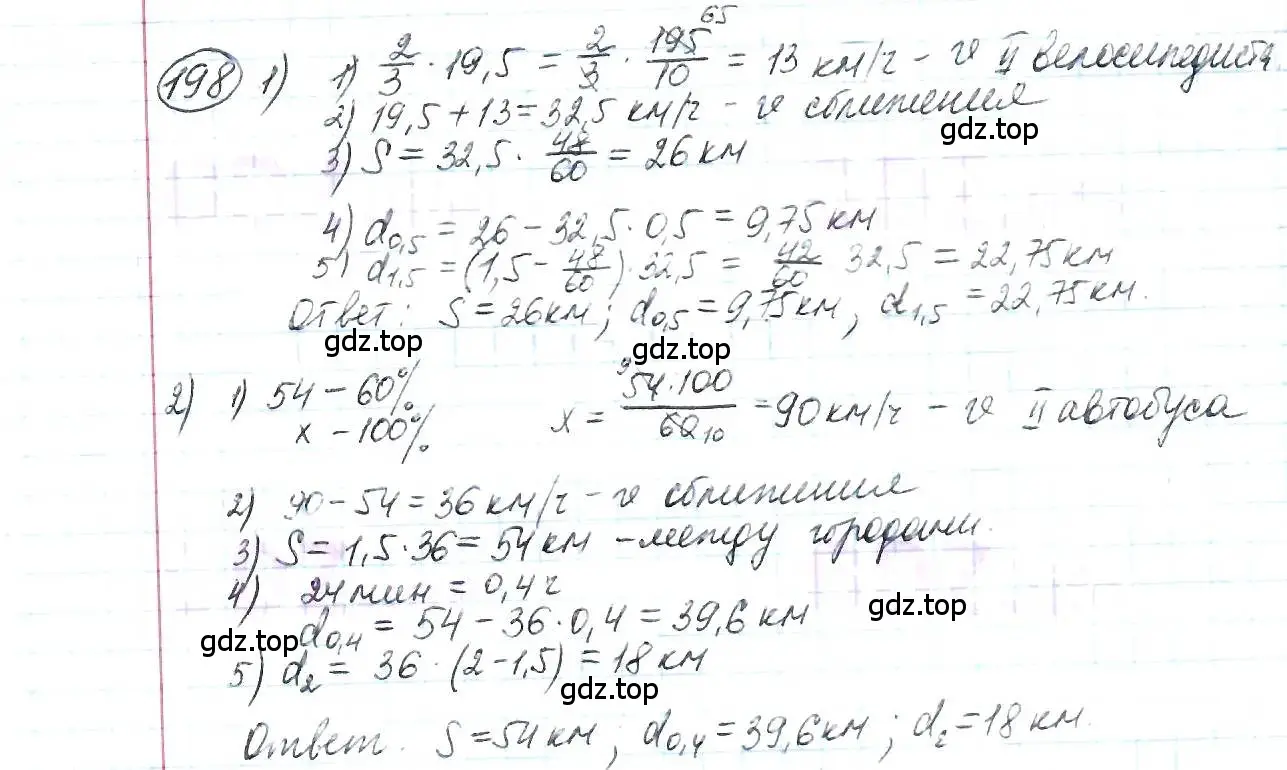 198 1) 1) 2/3 · 19,5 = 2/3 · 195/10 65 = 13 км/ч - v II велосипедиста
2) 19,5 + 13 = 32,5 км/ч - v сближения
gdz.top
3) S = 32,5 · 48/60 = 26 км
4) d0,5 = 26 - 32,5 · 0,5 = 9,75 км
5) d1,5 = (1,5 - 48/60) · 32,5 = 42/60 32,5 = 22,75 км
Ответ: S = 26 км; d0,5 = 9,75 км, d1,5 = 22,75 км.
gdz.top
2) 1) 54 - 60%
x - 100%
x = 54 · 100 / 60 9 10 = 90 км/ч - v II автобуса
2) 90 - 54 = 36 км/ч - v сближения
3) S = 1,5 · 36 = 54 км - между городами.
4) 24 мин = 0,4 ч
gdz.top
d0,4 = 54 - 36 · 0,4 = 39,6 км
gdz.top
5) d2 = 36 · (2 - 1,5) = 18 км
gdz.top
Ответ. S = 54 км; d0,4 = 39,6 км; d2 = 18 км.